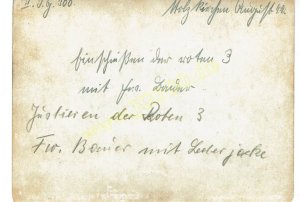 II. J.G. 300. Holzkirchen August 44.
Einschießen der roten 3
mit Fw. Bauer.
Justieren der Roten 3
Fw. Bauer mit Lederjacke